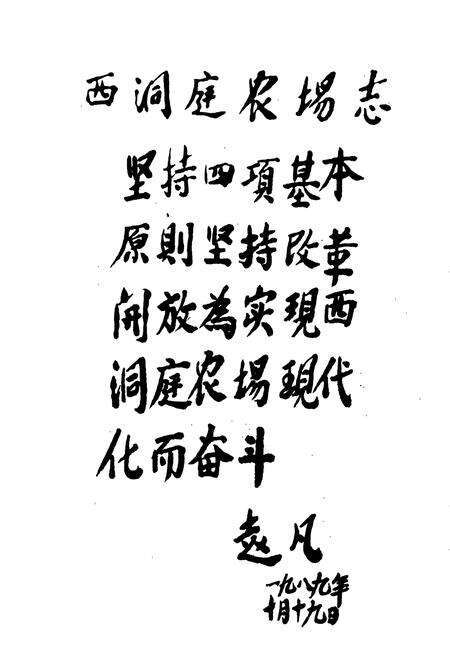 西洞庭农場志
坚持四項基本
原則坚持改革
開放為实現西
洞庭农場現代
化而奋斗
赵凡
一九八九年
十月十九日